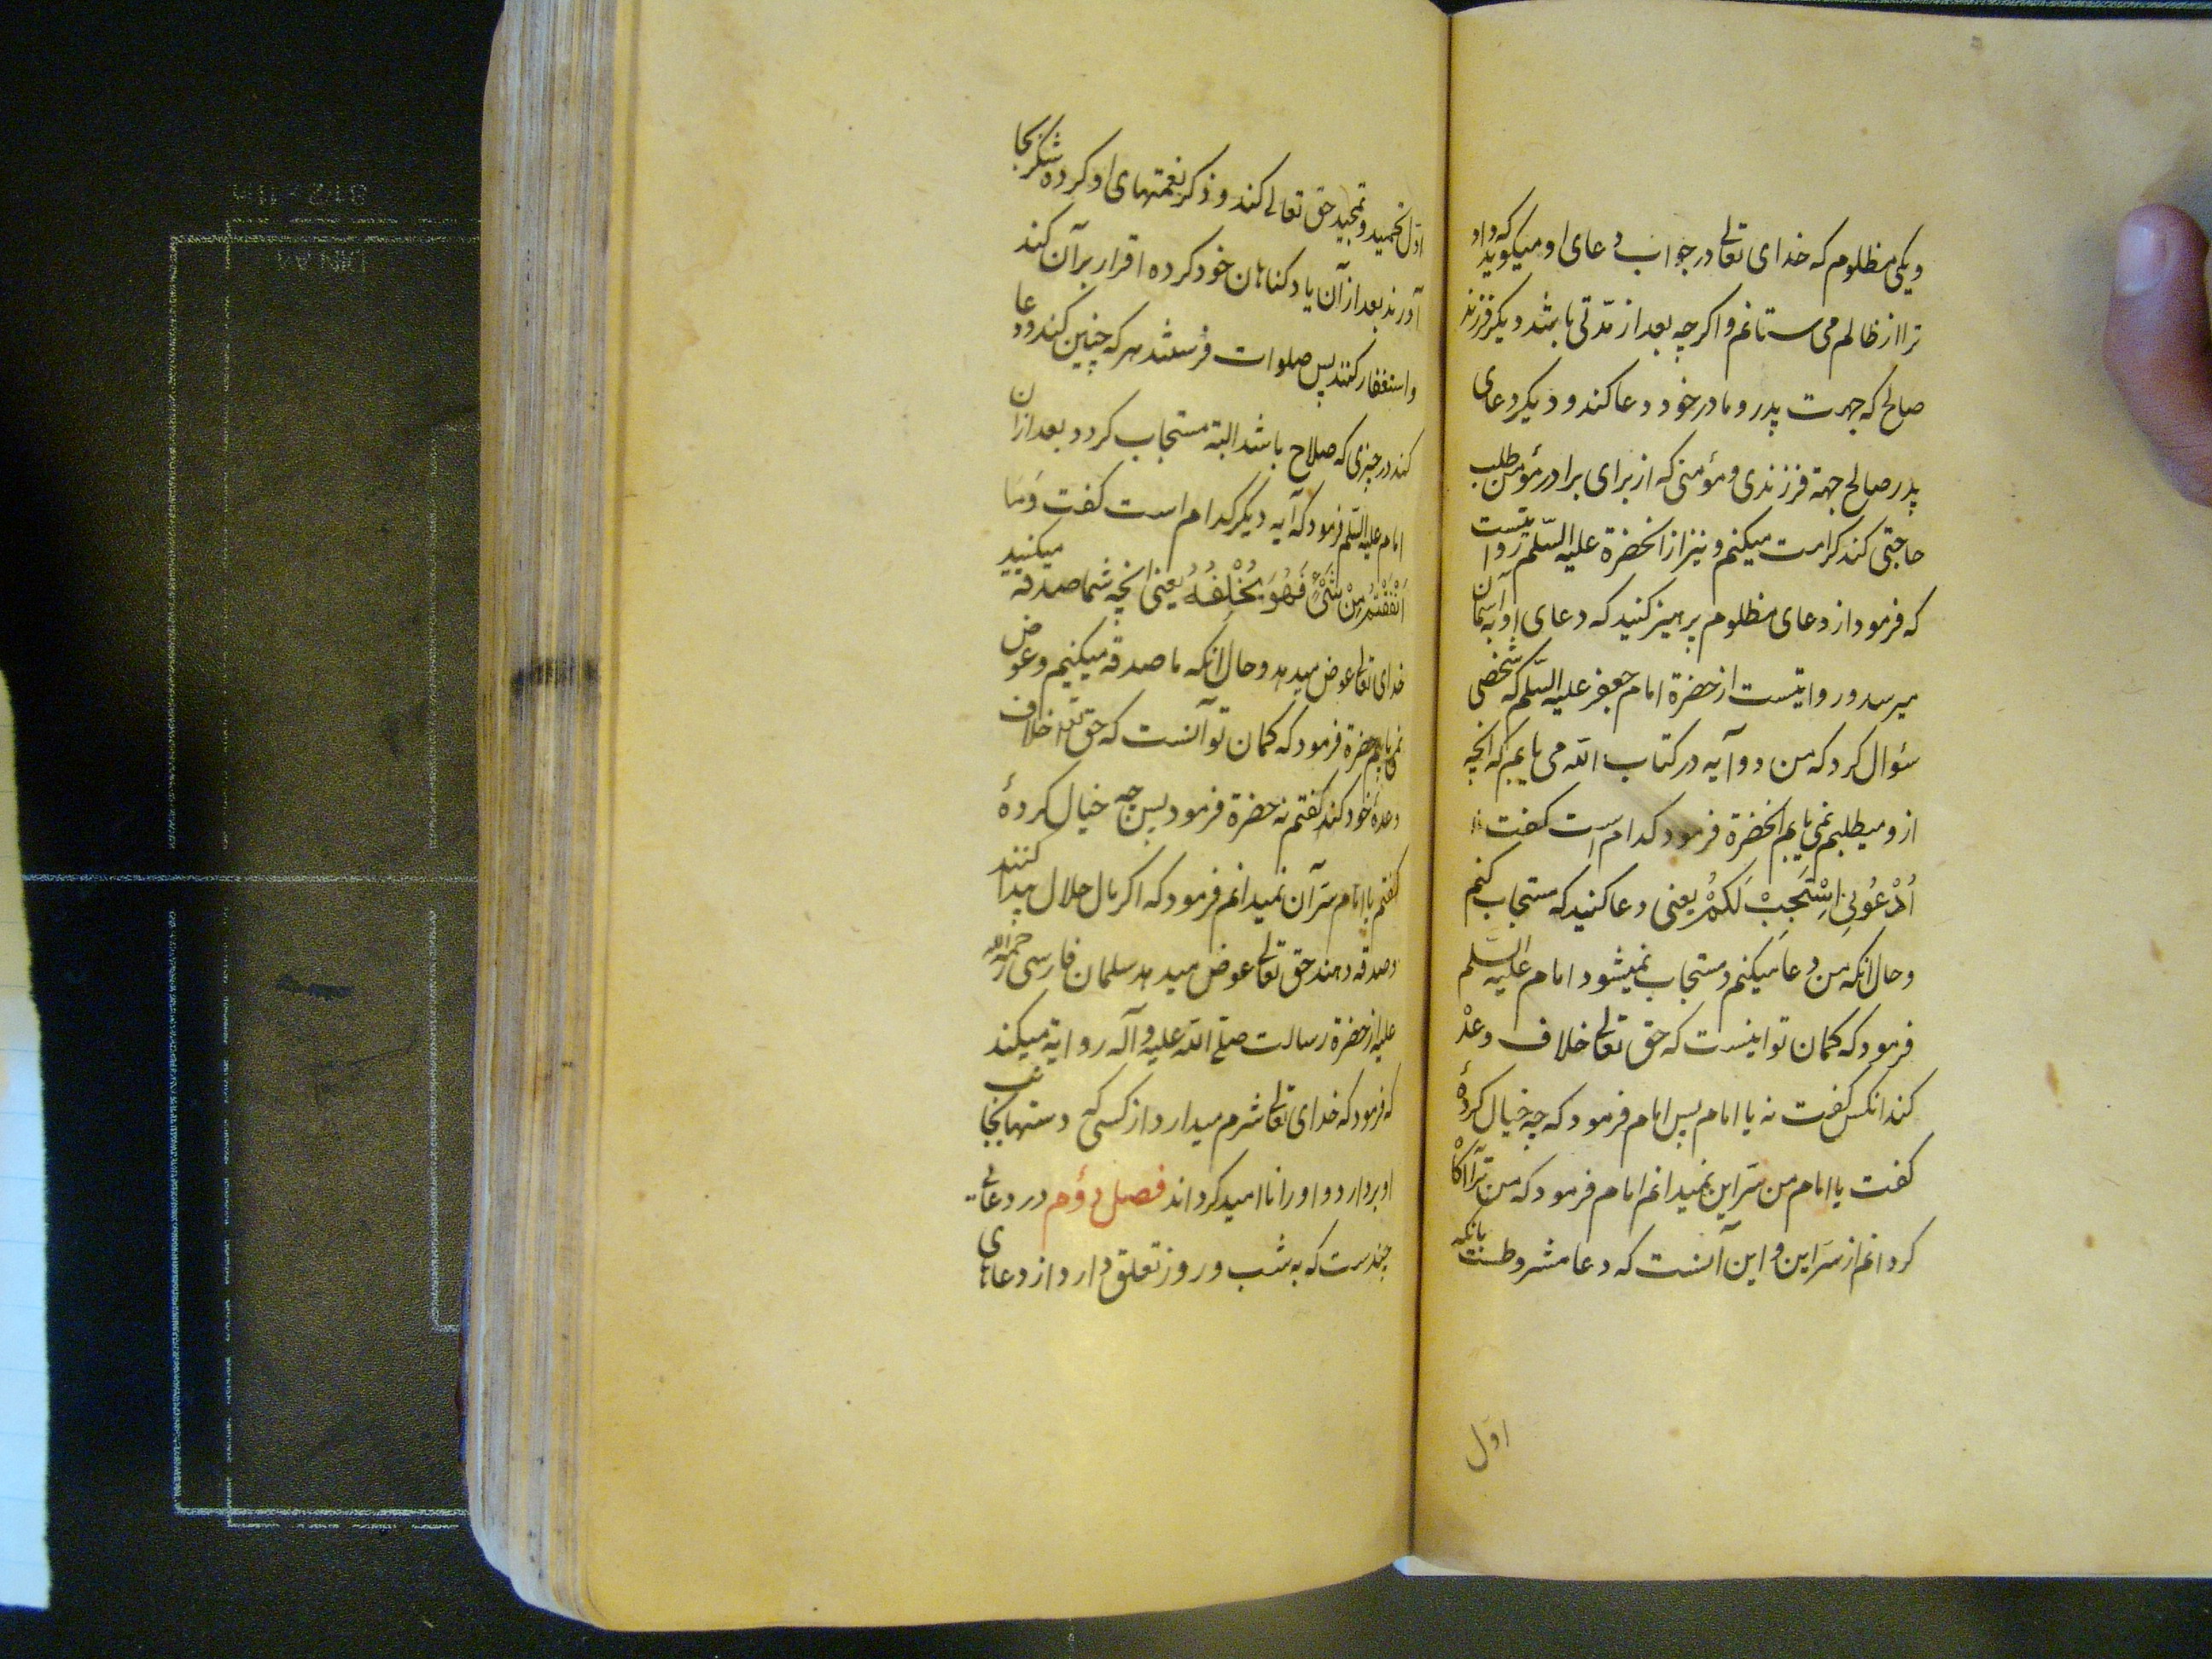 و یکی مظلوم که خدای تعالی در جواب دعای او میکوید که داد
ترا از ظالم می ستانم و اکرچه بعد از مدّتی باشد دیکر فرزند
صالح که جهت پدر و مادر خود دعا کند و دیکر دعای
پدر صالح جهة فرزندی و مؤمنی که از برای برادر مؤمن طلب
حاجتی کند کرامت میکنم و نیز از انحضرة علیه السّلم روایتست
که فرمود از دعای مظلوم پرهیز کنید که دعای او به آسمان
میرسد و روایتست از حضرة امام جعفر علیه السّلم که شخصی
سؤال کرد که من دو آیه در کتاب الله می یابم که انچه
ازو میطلبم نمی یابم انحضرة فرمود کدام است کفت
اُدْعُونِی اَسْتَجِبْ لَکُمْ یعنی دعا کنید که مستجاب کنم
و حال انکه من دعا میکنم و مستجاب نمیشود امام علیه السّلم
فرمود که کمان تو اینست که حق تعالی خلاف وعدْ
کند انکس کفت نه یا امام پس امام فرمود که چه خیال کردۀ
کفت یا امام من سّر این نمیدانم امام فرمود که من ترا آکاْ
کردانم از سّر این و این آنست که دعا مشروطست بانکه
اوّل
اوّل تحمید و تمجید حق تعالی کند و ذکر نعمتهای او کرده شکر بجا
آورند بعد از آن یاد کناهان خود کرده اقرار بر آن کند
و استغفار کنند پس صلوات فرستند هر که چنین کند و دعا
کند در چیزی که صلاح باشد البته مستجاب کردد بعد ازان
امام علیه السّلم فرمود که آیه دیکر کدام است کفت وَمَا
اَنْفَقْتُمْ مِنْ شَیْءٍ فَهُوَ یُخْلِفُهُ یعنی انچه شما صدقه میکنید
خدای تعالی عوض میدهد و حال انکه ما صدقه میکنیم و عوض
نمی یابیم حضرة فرمود که کمان تو آنست که حق تعالی خلاف
وعدۀ خود کند کفتم نه حضرة فرمود پس چه خیال کردۀ
کفتم یا امام سّر آن نمیدانم فرمود که اکر مال حلال پیدا کنند
و صدقه دهند حق تعالی عوض میدهد سلمان فارسی رحمة الله
علیه از حضرة رسالت صلّی الله علیه و آله روایة میکند
که فرمود که خدای تعالی شرم میدارد از کسی که دستها بجانب
او بردارد و او را ناامید کرداند فصل دوّم در دعائی
چندست که به شب و روز تعلّق دارد از دعاهای